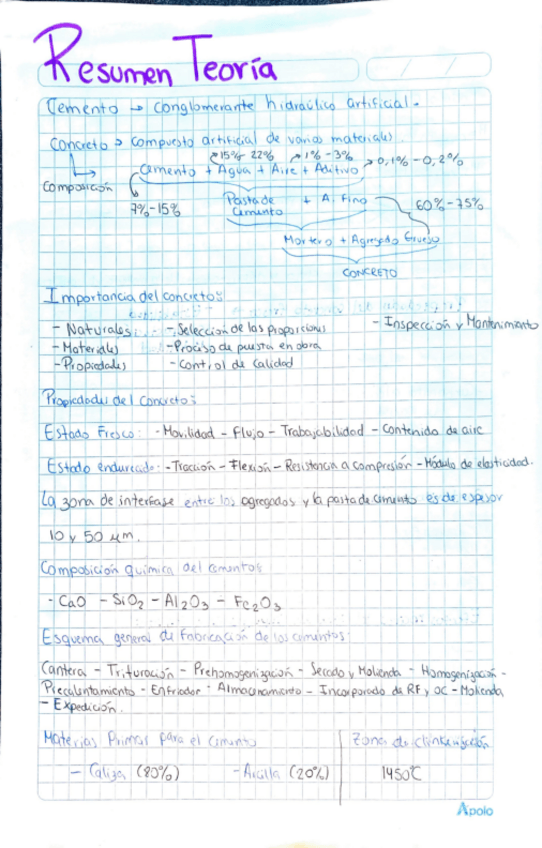 Resumen Teoría
Cemento → conglomerante hidraúlico artificial.
Concreto → compuesto artificial de varios materiales.
15% 22% 1% - 3% 0,1% - 0,2%
Cemento + Agua + Aire + Aditivo
Composición
7% - 15% Pasta de Cemento + A. Fino 60% - 75%
Mortero + Agregado Grueso
CONCRETO
Importancia del concreto:
- Naturales - Selección de las proporciones - Inspección y Mantenimiento
- Materiales - Proceso de puesta en obra
- Propiedades - Control de Calidad
Propiedades del Concreto:
Estado Fresco: - Movilidad - Flujo - Trabajabilidad - Contenido de aire
Estado endurecido: - Tracción - Flexión - Resistencia a compresión - Módulo de elasticidad.
La zona de interfase entre los agregados y la pasta de cemento es de espesor
10 y 50 μm.
Composición química del cemento:
- CaO - SiO₂ - Al₂O₃ - Fe₂O₃
Esquema general de fabricación de los cementos:
Cantera - Trituración - Prehomogenización - Secado y Molienda - Homogenización -
Precalentamiento - Enfriador - Almacenamiento - Incorporado de RF y OC - Molienda
- Expedición.
Materias Primas para el Cemento Zona de clinkerización
- Caliza (80%) - Arcilla (20%) 1450°C
Apolo